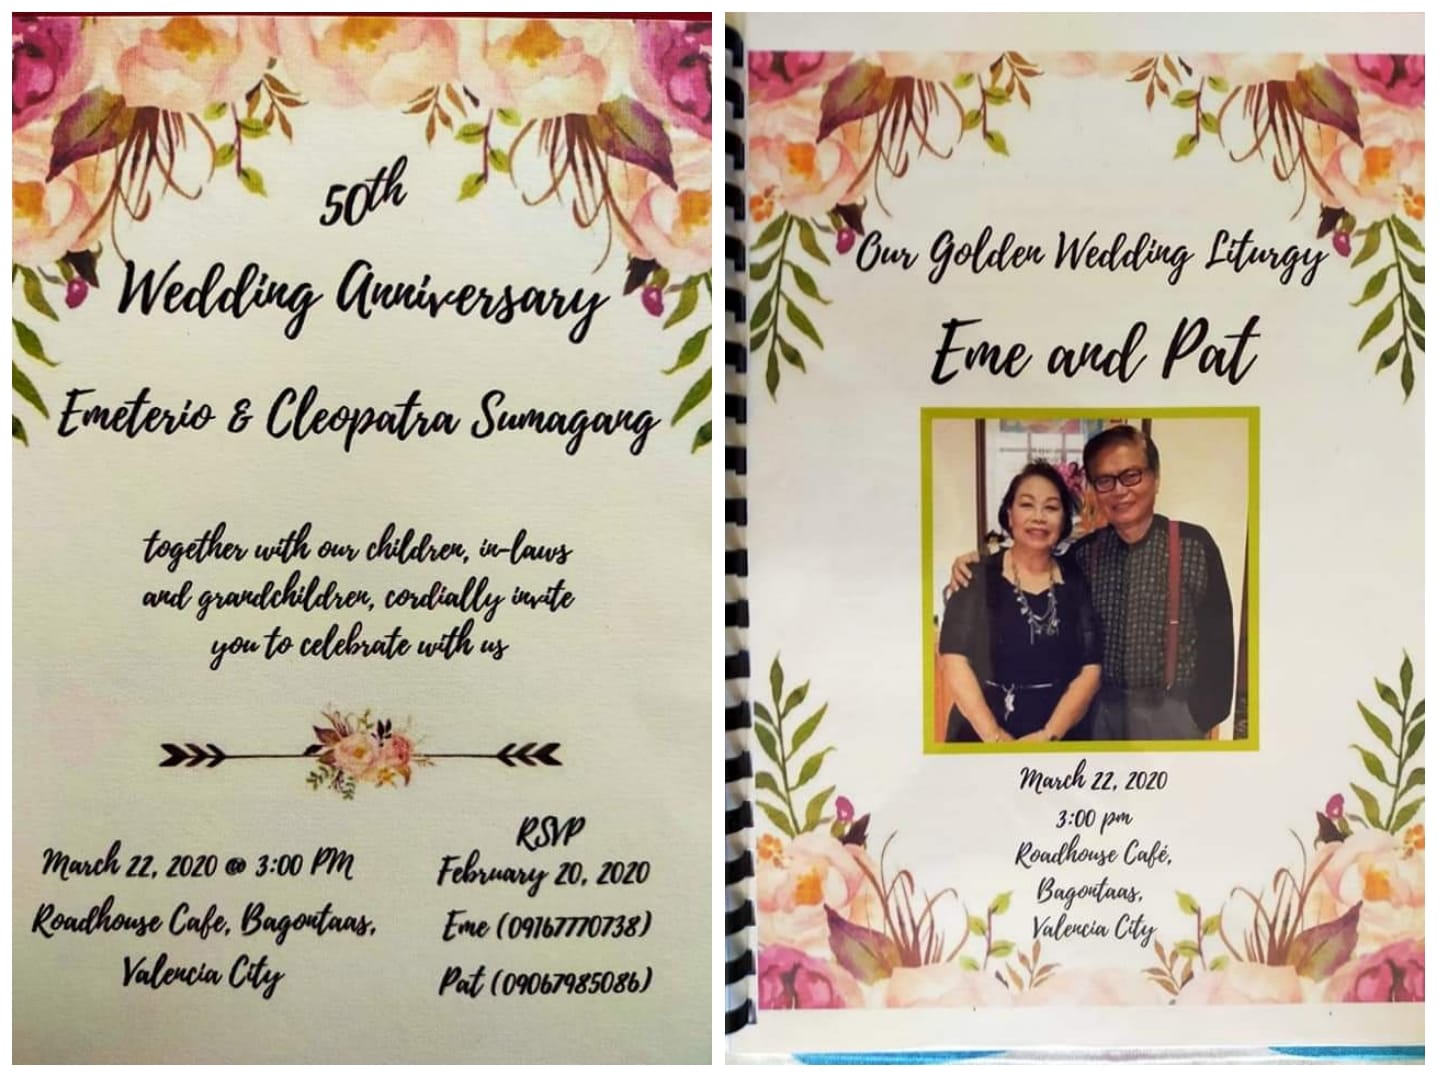 50th
Wedding Anniversary
Emeterio & Cleopatra Sumagang
together with our children, in-laws
and grandchildren, cordially invite
you to celebrate with us
March 22, 2020 @ 3:00 PM
Roadhouse Cafe, Bagontaas,
Valencia City
RSVP
February 20, 2020
Eme (09167770738)
Pat (09067985086)
Our Golden Wedding Liturgy
Eme and Pat
March 22, 2020
3:00 pm
Roadhouse Café,
Bagontaas,
Valencia City